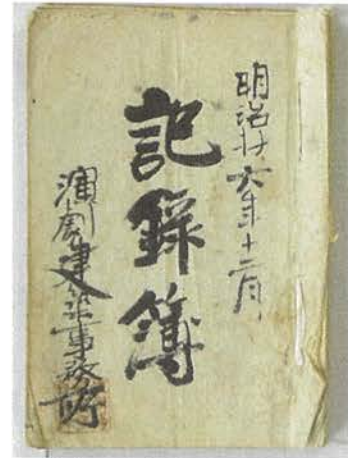 明治廿六年十二月
記録簿
演劇建築事務所